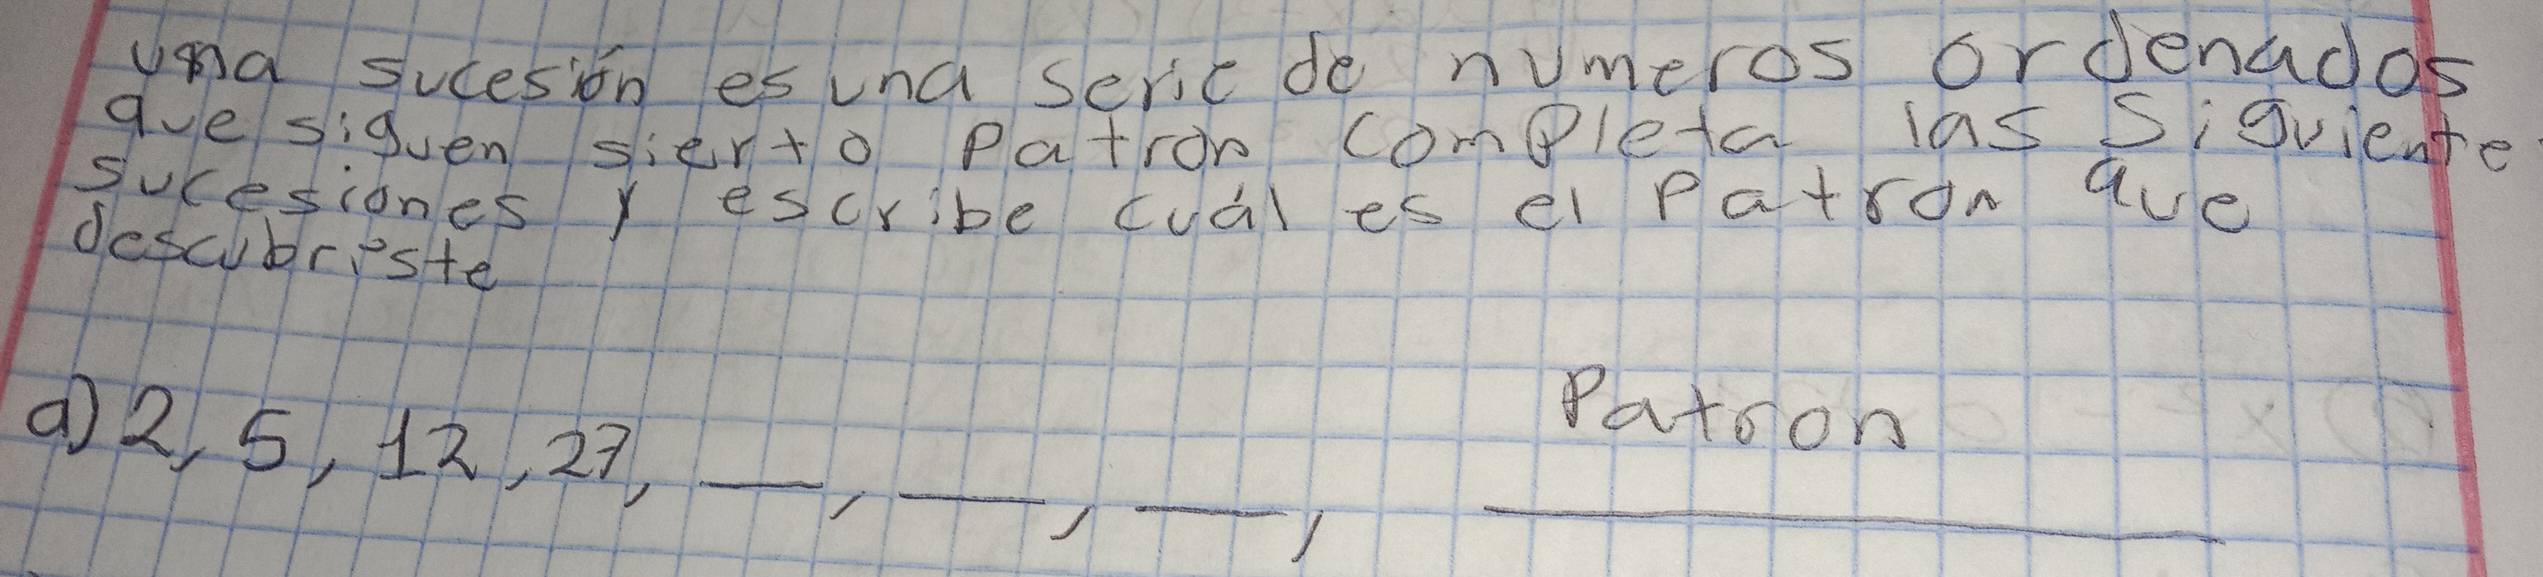 una sucesión es una serie de numeros ordenados
que siguen sierto patron completa las siguiente
sucesiones y escribe cuál es el patron que
descubriste
Patron
a) 2, 5, 12, 27, __, __, __, ________